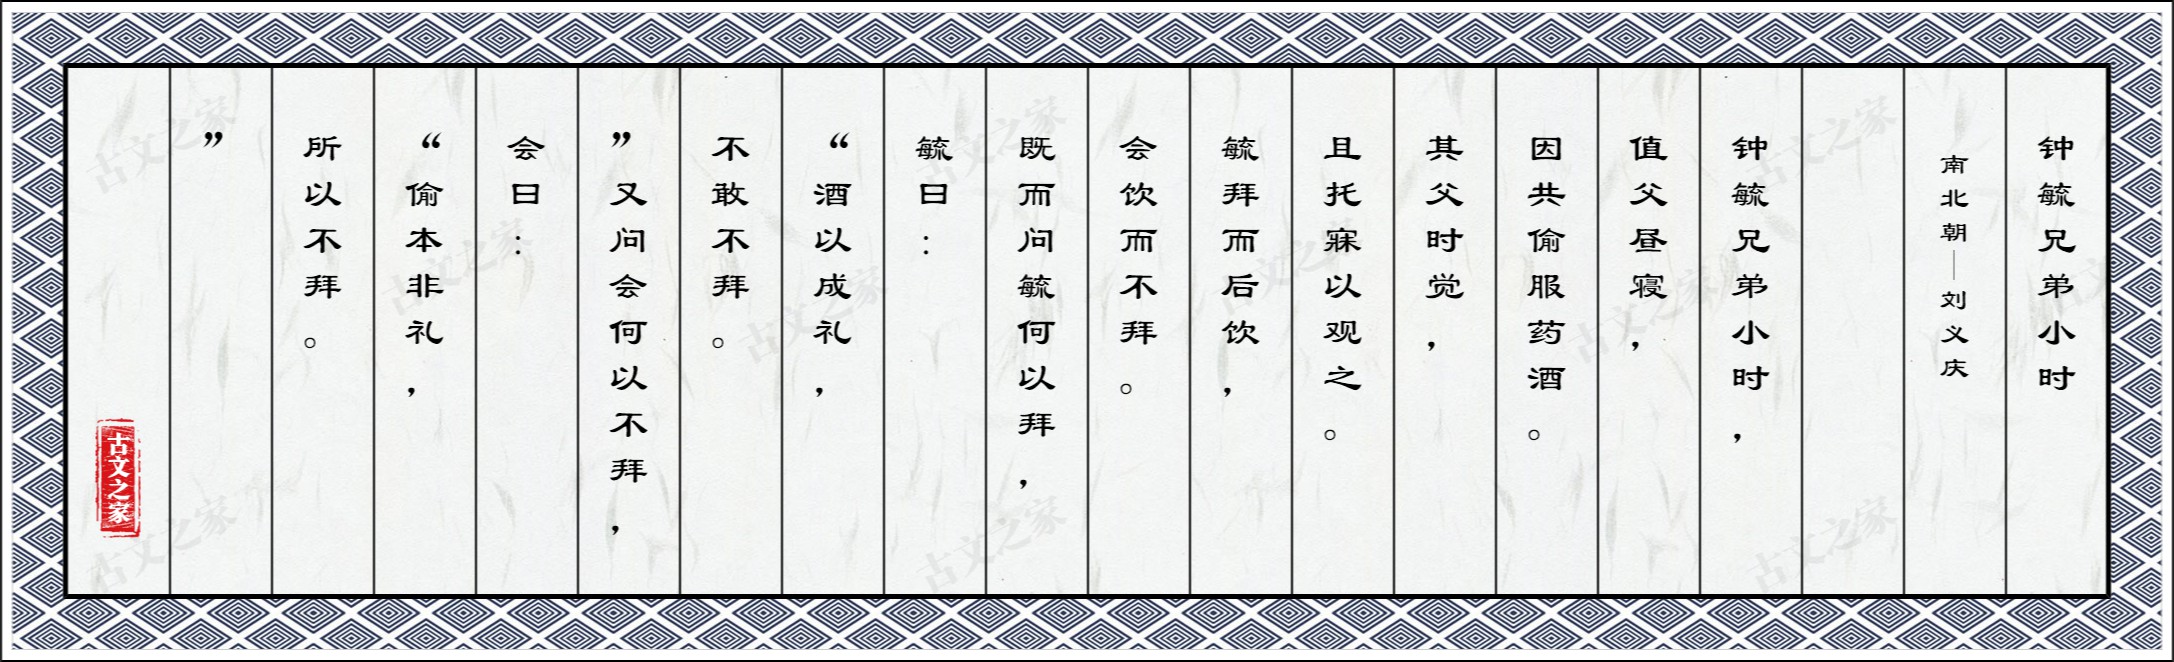 钟毓兄弟小时
南北朝—刘义庆
钟毓兄弟小时，
值父昼寝，
因共偷服药酒。
其父时觉，
且托寐以观之。
毓拜而后饮，
会饮而不拜。
既而问毓何以拜，
毓曰：
“酒以成礼，
不敢不拜。
”又问会何以不拜，
会曰：
“偷本非礼，
所以不拜。
”
古文之家